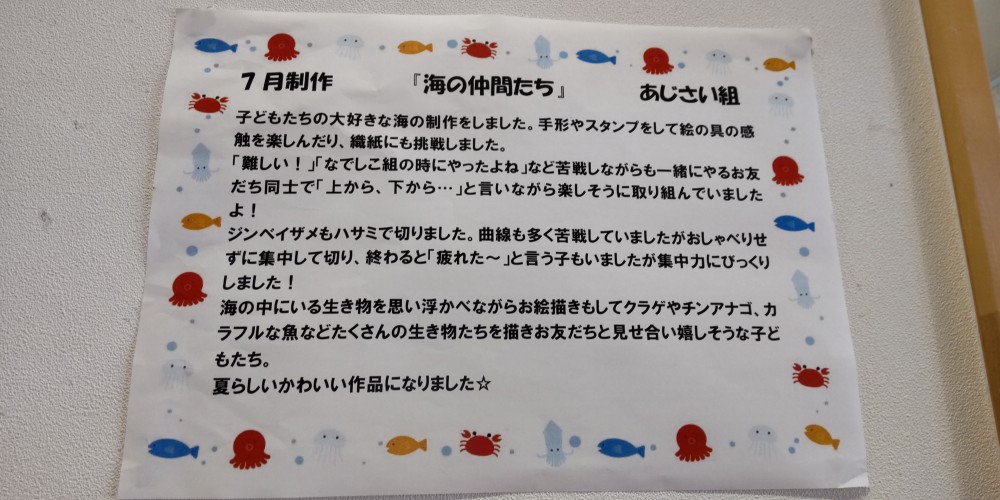 7月制作 『海の仲間たち』 あじさい組
子どもたちの大好きな海の制作をしました。手形やスタンプをして絵の具の感
触を楽しんだり、織紙にも挑戦しました。
「難しい！」「なでしこ組の時にやったよね」など苦戦しながらも一緒にやるお友
だち同士で「上から、下から…」と言いながら楽しそうに取り組んでいました
よ！
ジンベイザメもハサミで切りました。曲線も多く苦戦していましたがおしゃべりせ
ずに集中して切り、終わると「疲れた～」と言う子もいましたが集中力にびっくり
しました！
海の中にいる生き物を思い浮かべながらお絵描きもしてクラゲやチンアナゴ、カ
ラフルな魚などたくさんの生き物たちを描きお友だちと見せ合い嬉しそうな子ど
もたち。
夏らしいかわいい作品になりました☆